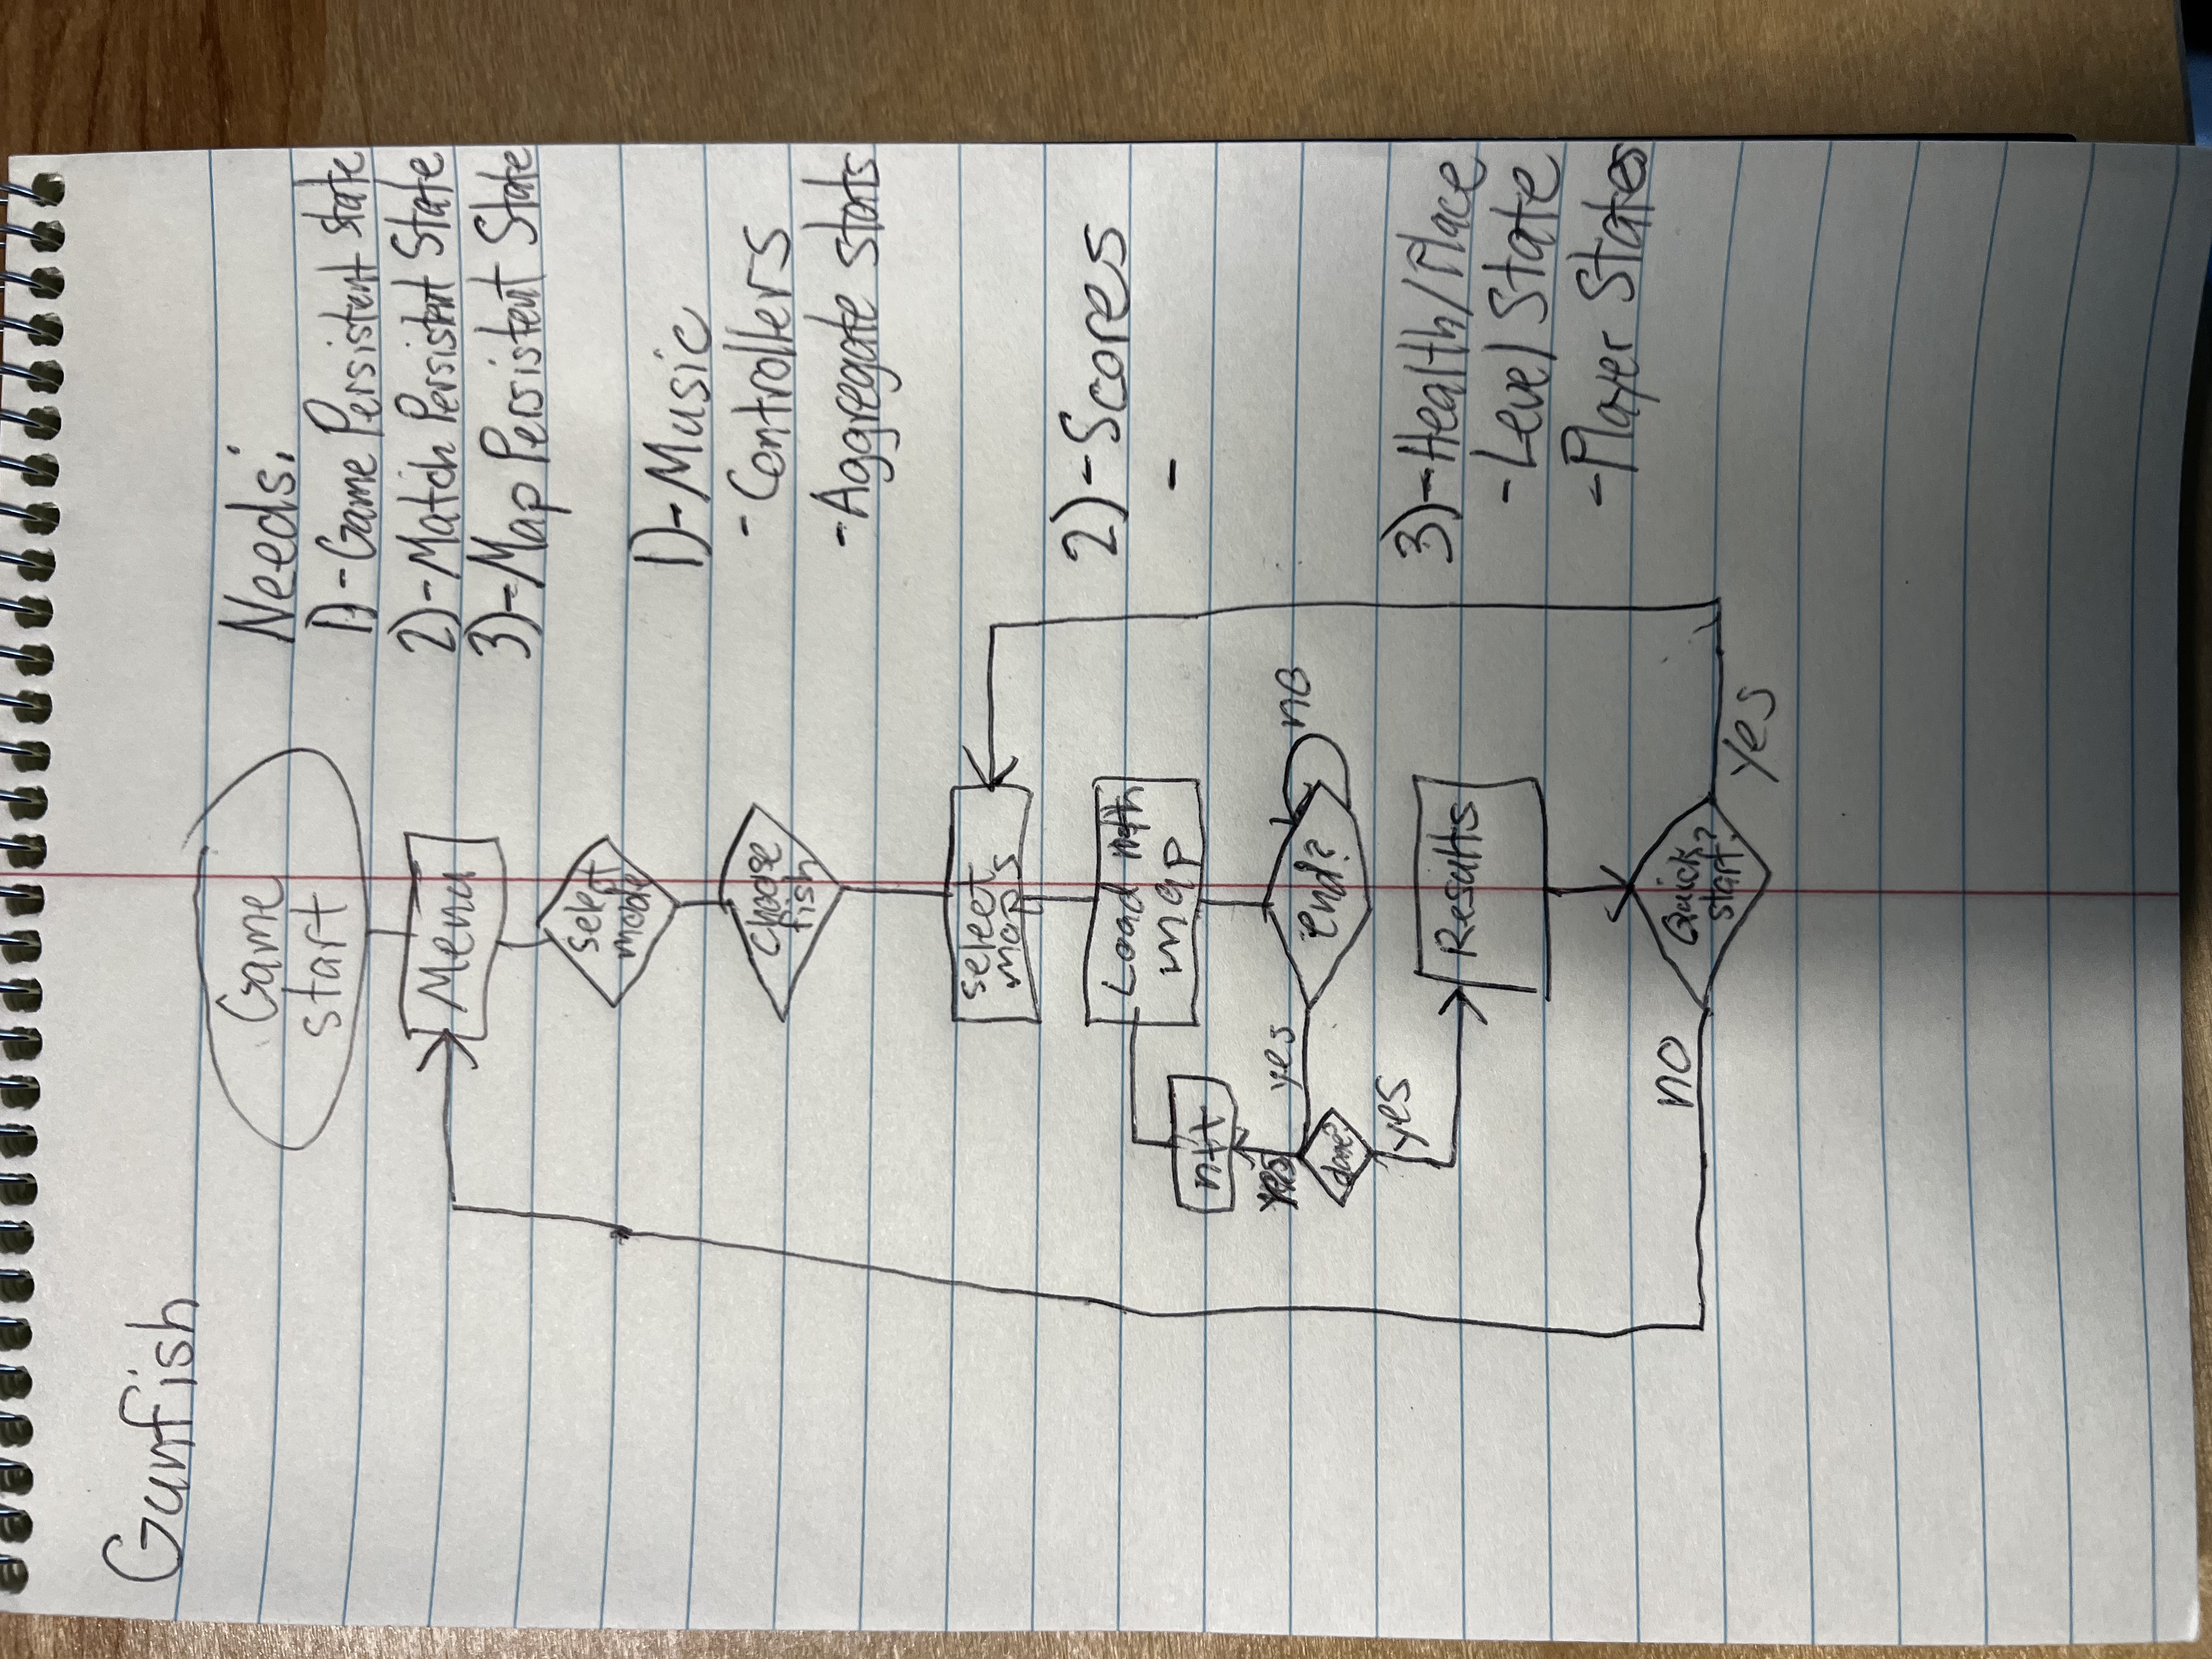 Gunfish
Game
start
Menu
select
mode
choose
fish
select
maps
Load nth
map
n++
yes
end?
no
done?
yes
Results
Quick
start?
no
yes
Needs:
1)-Game Persistent State
2)-Match Persistent State
3)-Map Persistent State
1)-Music
-Controllers
-Aggregate stats
2)-Scores
-
3)-Health/Place
-Level State
-Player States